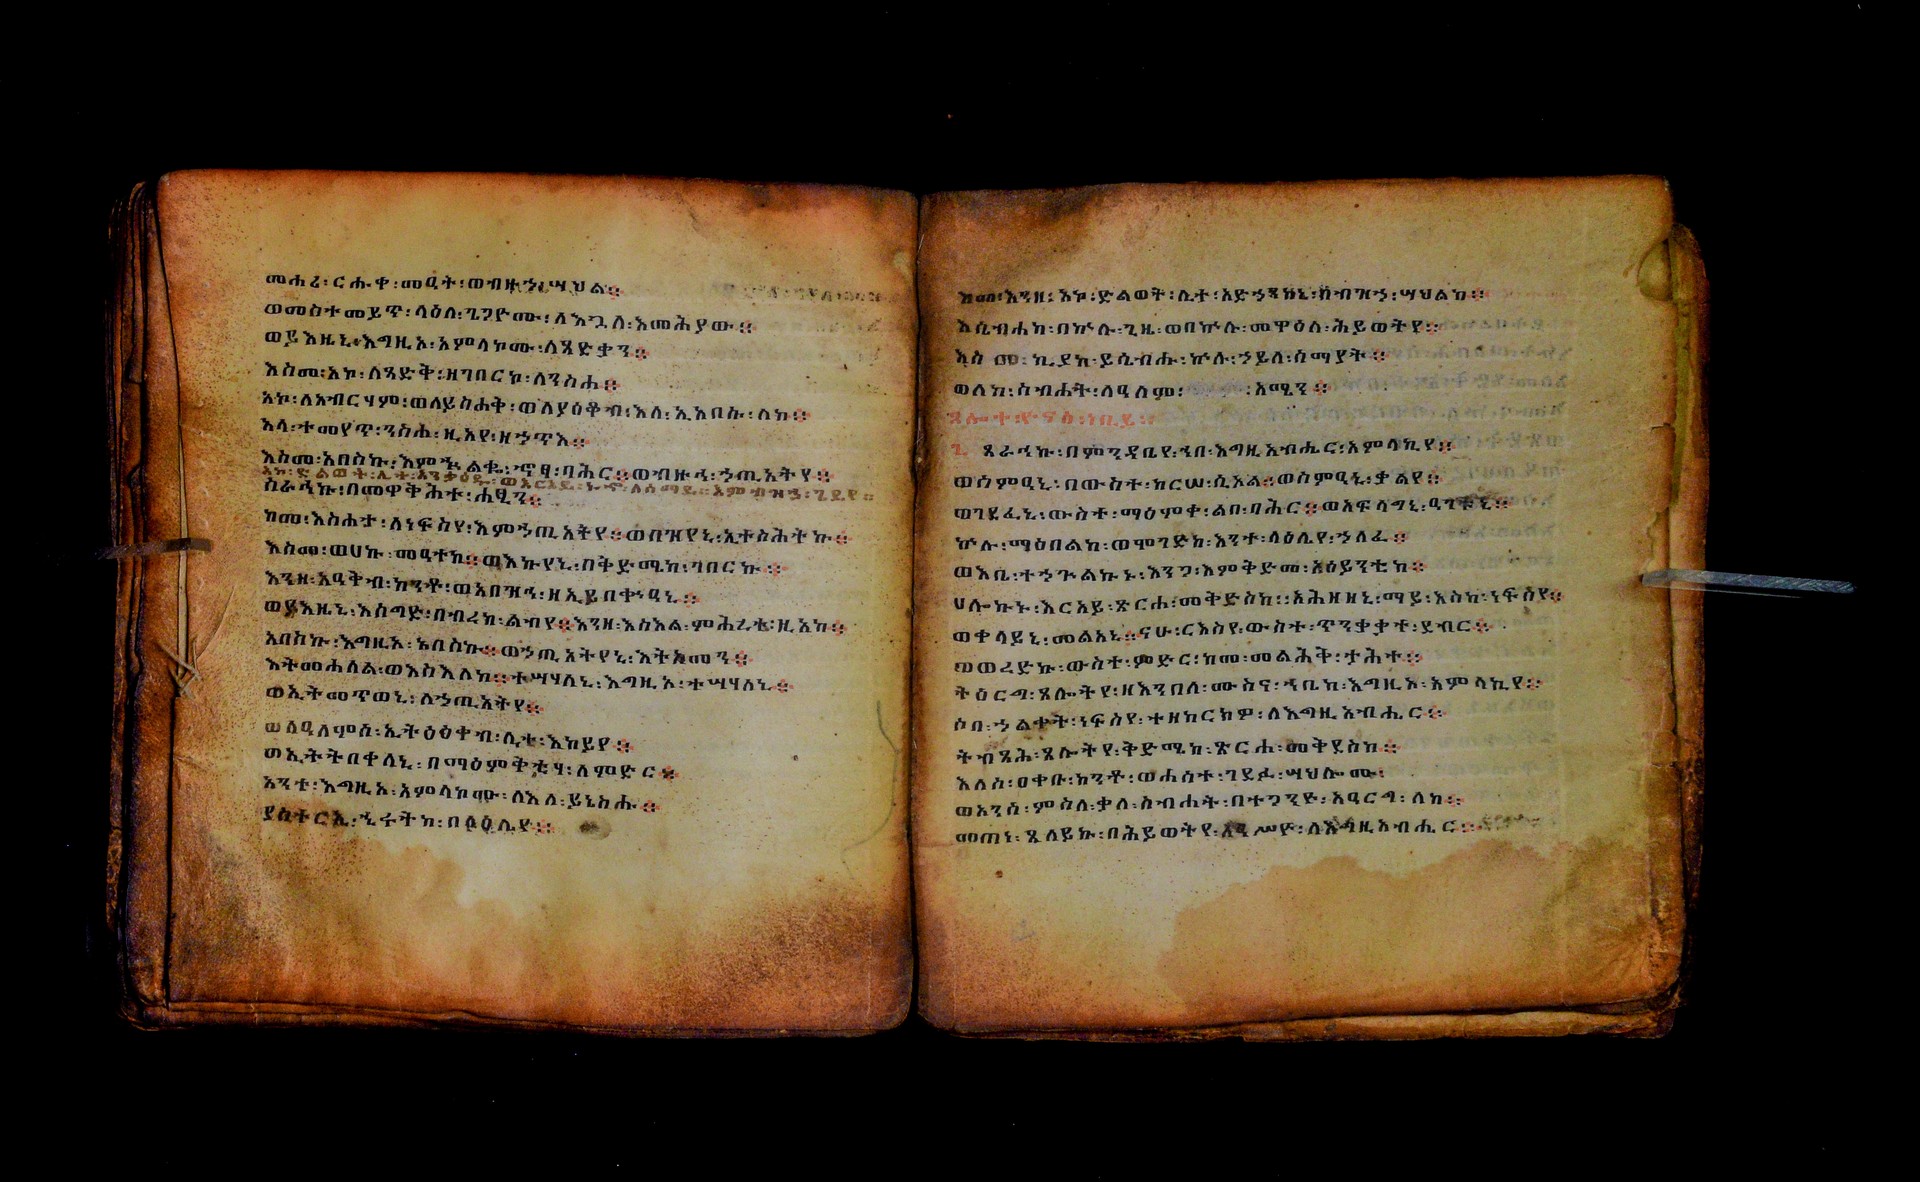 መሐሪ፡ርሑቀ፡መዓት፡ወብዙኀ፡ሣህል።
ወመስተመይጥ፡ላዕለ፡ጌጋዮሙ፡ለእጓለ፡እመሕያው።
ወይእዚኒ፡እግዚኦ፡አምላኮሙ፡ለጻድቃን።
እስመ፡አኮ፡ለጻድቅ፡ዘገበርኮ፡ለንስሐ።
አኮ፡ለአብርሃም፡ወለይስሐቅ፡ወለያዕቆብ፡እለ፡ኢአበሱ፡ለከ።
አላ፡ተመየጥ፡ንስሐ፡ዚአየ፡ዘኃጥእ።
እስመ፡አበስኩ፡እምኈልቈ፡ኆፃ፡ባሕር።ወብዙኅ፡ኀጢአትየ።
አኮ፡ድልወት፡ሊተ፡አንቃዕዱ፡ወእርአይ፡ኑኀ፡ለሰማይ።እምብዝኀ፡ጌጋይየ።
ስራኅኩ፡በመዋቅሕተ፡ሐፂን።
ከመ፡እስሐታ፡ለነፍስየ፡እምኀጢአትየ።ወበዝየኒ፡ኢተስሕትኩ።
እስመ፡ወሀኩ፡መዓተከ።ወእኩየኒ፡በቅድሜከ፡ገበርኩ።
እንዘ፡አዓቅብ፡ከንቶ፡ወአበዝኅ፡ዘኢይበቍዓኒ።
ወይእዜኒ፡እስግድ፡በብረከ፡ልብየ።እንዘ፡እስእል፡ምሕረተ፡ዚአከ።
አበስኩ፡እግዚኦ፡አበስኩ።ወኀጢአትየኒ፡አትአመን።
እትመሐለል፡ወእስእለከ።ተሣሃለኒ፡እግዚኦ፡ተሣሃለኒ።
ወኢትመጥወኒ፡ለኀጢአትየ።
ወለዓለምሰ፡ኢትዕፅቀብ፡ሊተ፡እከይየ።
ወኢትትበቀለኒ፡በማዕምቅቲሃ፡ለምድር።
አንተ፡እግዚኦ፡አምላኮሙ፡ለእለ፡ይኔስሑ።
ያስተርኢ፡ኂሩትከ፡በላዕሌየ።
እመ፡እንዘ፡አኮ፡ድልወት፡ሊተ፡አድኃንከኒ፡በብዝኀ፡ሣህልከ።
እሴብሐከ፡በኵሉ፡ጊዜ፡ወበኵሉ፡መዋዕለ፡ሕይወትየ።
እስመ፡ኪያከ፡ይሴብሑ፡ኵሉ፡ኃይለ፡ሰማያት።
ወለከ፡ስብሐት፡ለዓለም፡አሜን።
ጸሎተ፡ዮናስ፡ነቢይ፡
ጸራኅኩ፡በምንዳቤየ፡ኀበ፡እግዚአብሔር፡አምላኪየ።
ወሰምዓኒ፡በውስተ፡ከርሠ፡ሲኦል።ወሰምዓኒ፡ቃልየ።
ወገደፈኒ፡ውስተ፡ማዕምቀ፡ልበ፡ባሕር።ወአፍላግኒ፡ዓገቱኒ።
ኵሉ፡ማዕበልከ፡ወሞገድከ፡እንተ፡ላዕሌየ፡ኀለፈ።
ወእቤ፡ተኀጕልኩኑ፡እንጋ፡እምቅድመ፡አዕይንቲከ።
ሀሎኩኑ፡እርአይ፡ጽርሐ፡መቅድስከ።አሕዘዘኒ፡ማይ፡እስከ፡ነፍስየ።
ወቀላይኒ፡መልአኒ።ናሁ፡ርእስየ፡ውስተ፡ጥንቃቃተ፡ደብር።
ወወረድኩ፡ውስተ፡ምድር፡ከመ፡መልሕቅ፡ታሕተ።
ትዕርግ፡ጸሎትየ፡ዘእንበለ፡ሙስና፡ኀቤከ፡እግዚኦ፡አምላኪየ።
ሶበ፡ኃልቀት፡ነፍስየ፡ተዘከርክዎ፡ለእግዚአብሔር።
ትብጻሕ፡ጸሎትየ፡ቅድሜከ፡ጽርሐ፡መቅደስከ።
እለሰ፡ዐቀቡ፡ከንቶ፡ወሐሰተ፡ገደፉ፡ሣህሎሙ፡
ወአንሰ፡ምስለ፡ቃለ፡ስብሐት፡በተጋንዮ፡አዓርግ፡ለከ።
መጠነ፡ጸለይኩ፡በሕይወትየ፡ለእግዚአብሔር።